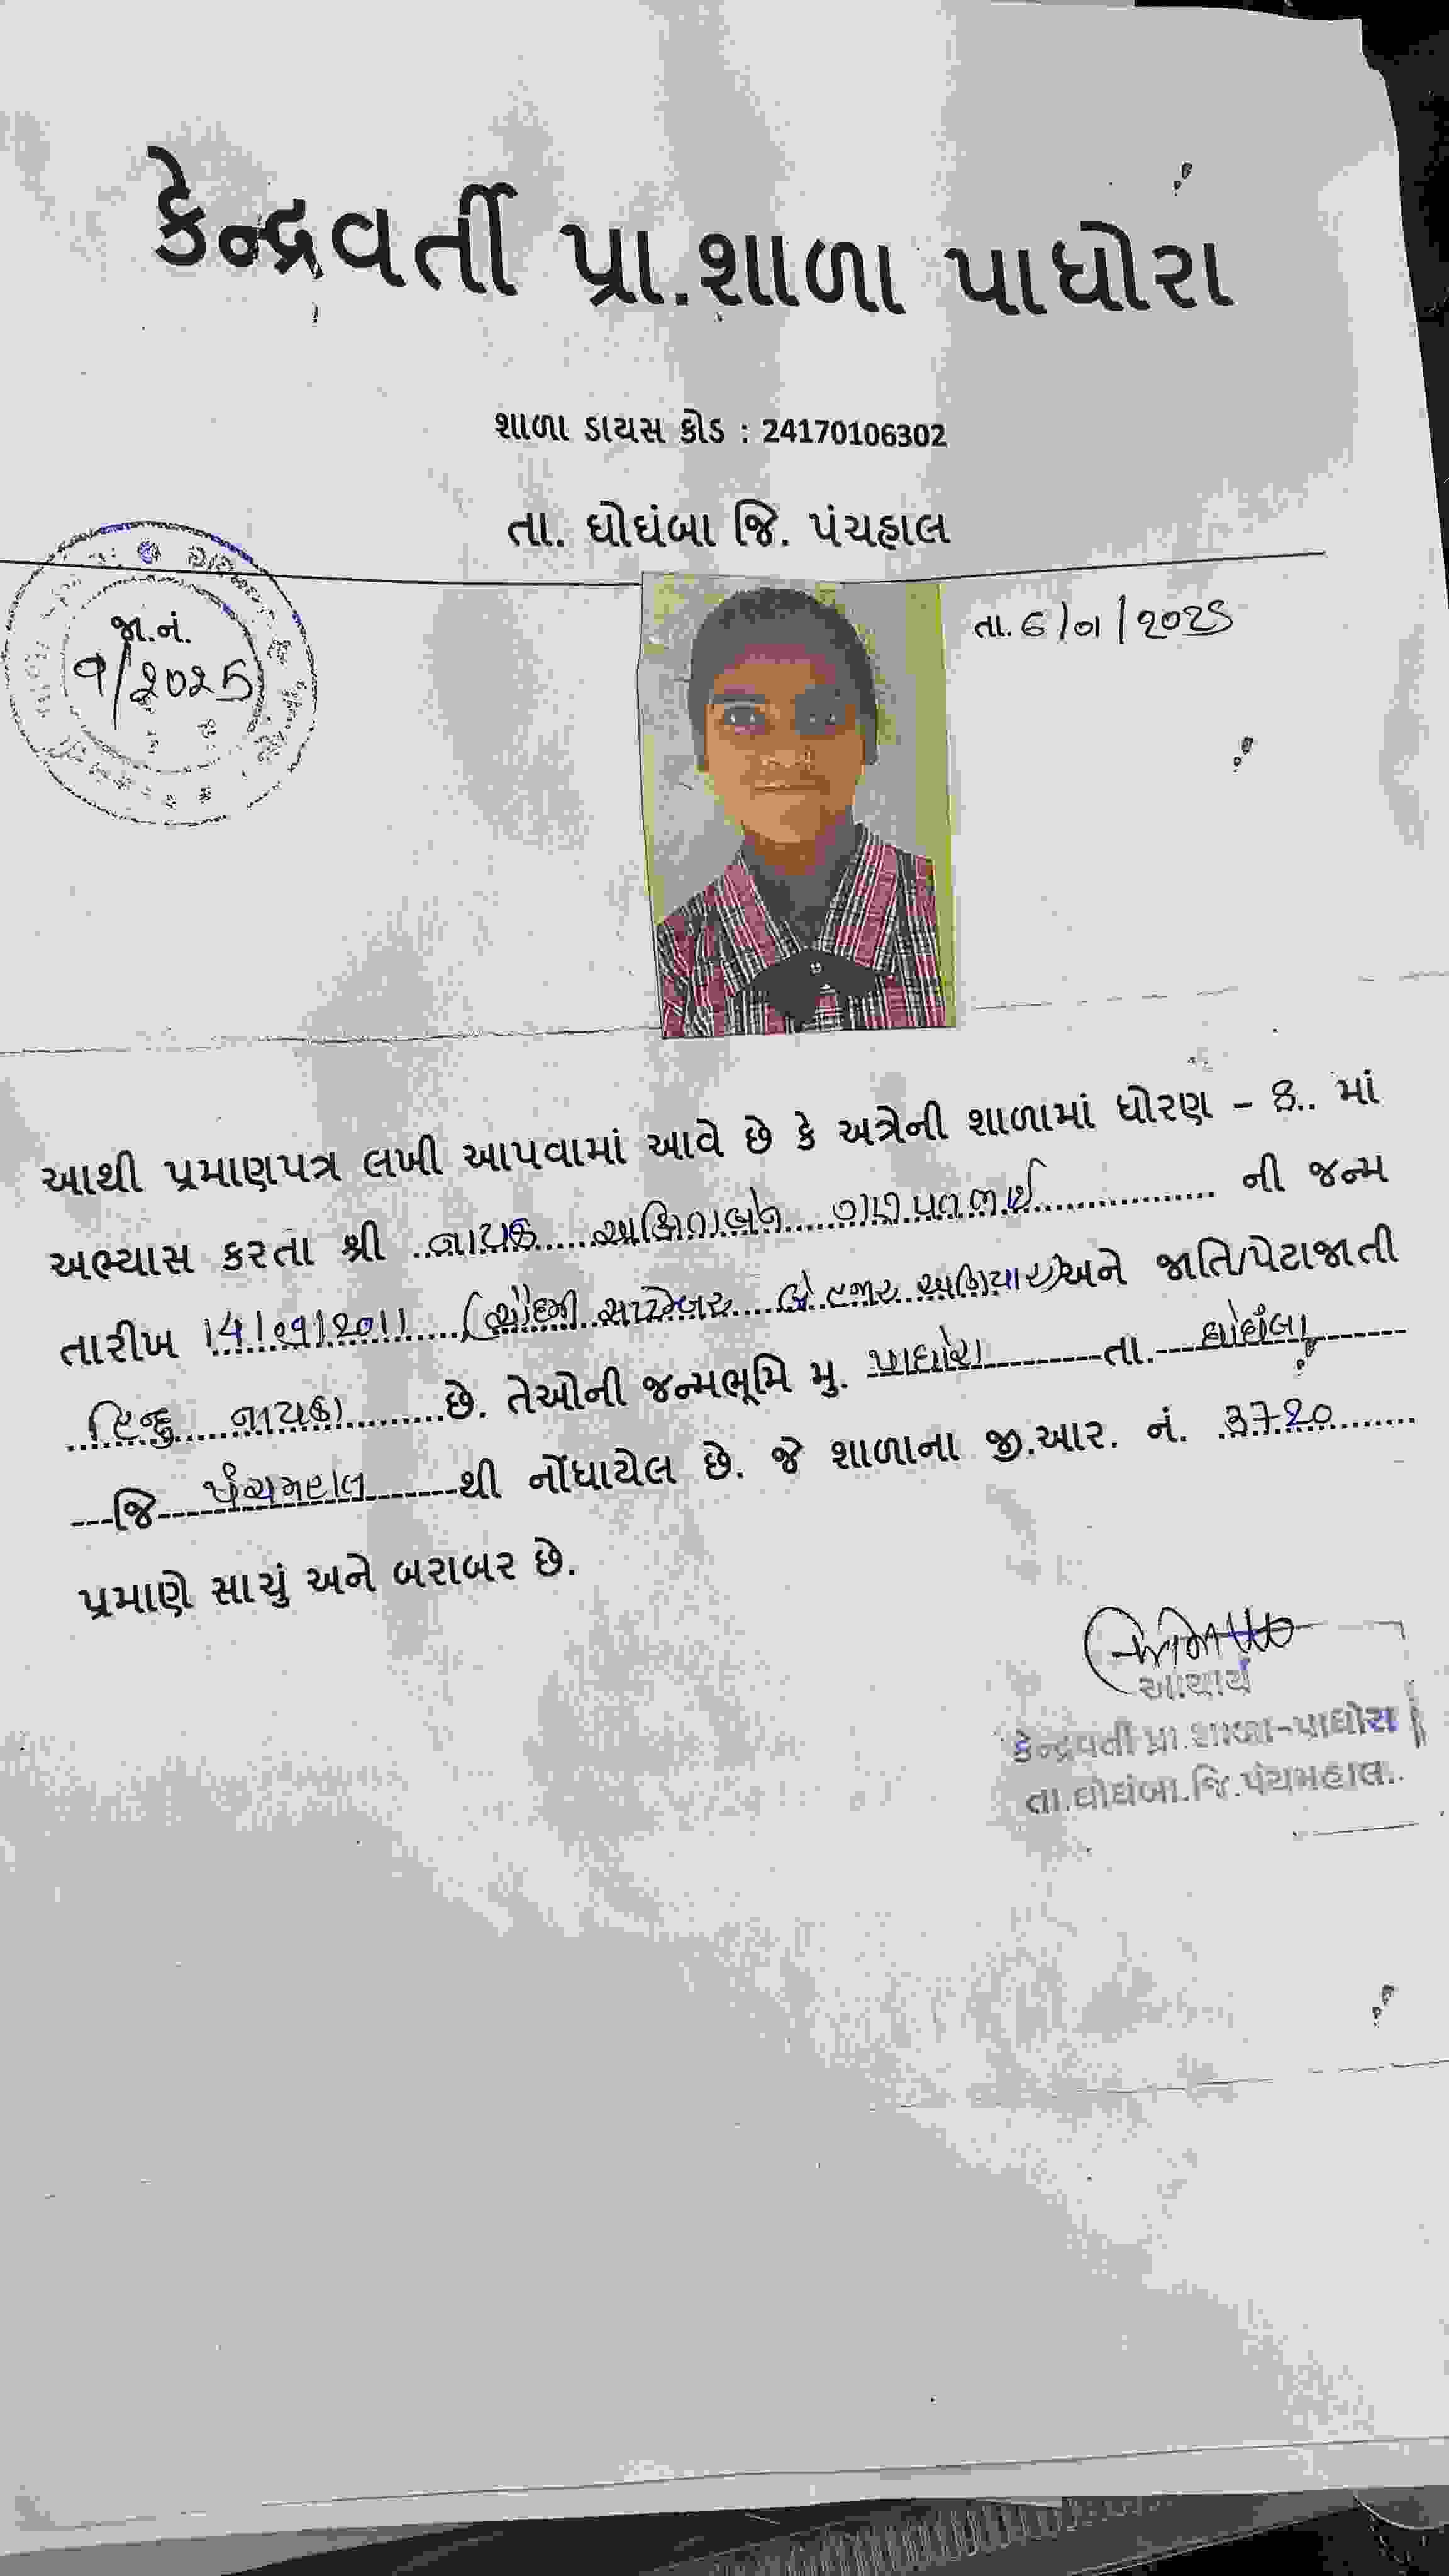 કેન્દ્રવર્તી પ્રા.શાળા પાધોરા
શાળા ડાયસ કોડ : 24170106302
તા. ઘોઘંબા જિ. પંચહાલ
જા.નં.
૧/૨૦૨૬
તા. ૬/૦૧/૨૦૨૬
આથી પ્રમાણપત્ર લખી આપવામાં આવે છે કે અત્રેની શાળામાં ધોરણ – 8.. માં
અભ્યાસ કરતા શ્રી નાયક ગણપતભાઈ ની જન્મ
તારીખ 14/09/2011 (ચૌદમી સપ્ટેમ્બર બે હજાર અગિયાર) અને જાતિ/પેટાજાતી
હિન્દુ નાયકા છે. તેઓની જન્મભૂમિ મુ. પાધોરા તા. ઘોઘંબા
જિ પંચમહાલ થી નોંધાયેલ છે. જે શાળાના જી.આર. નં. 3720
પ્રમાણે સાચું અને બરાબર છે.
આચાર્ય
કેન્દ્રવર્તી પ્રા.શાળા-પાધોરા
તા.ઘોઘંબા.જિ.પંચમહાલ..